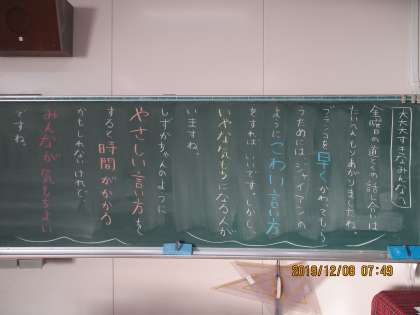 大大大すきなみんなへ
金曜日の道とくの話し合いは
たいへんもりあがりましたね。
ブランコを早くかわってもら
うためには、ジャイアンの
ようにこわい言い方
をすればいいです。しかし、
いやな気もちになる人が
いますね。
しずかちゃんのように
やさしい言い方を
すると時間がかかる
かもしれないけれど、
みんなが気もちよい
ですね。
2019/12/08 07:49